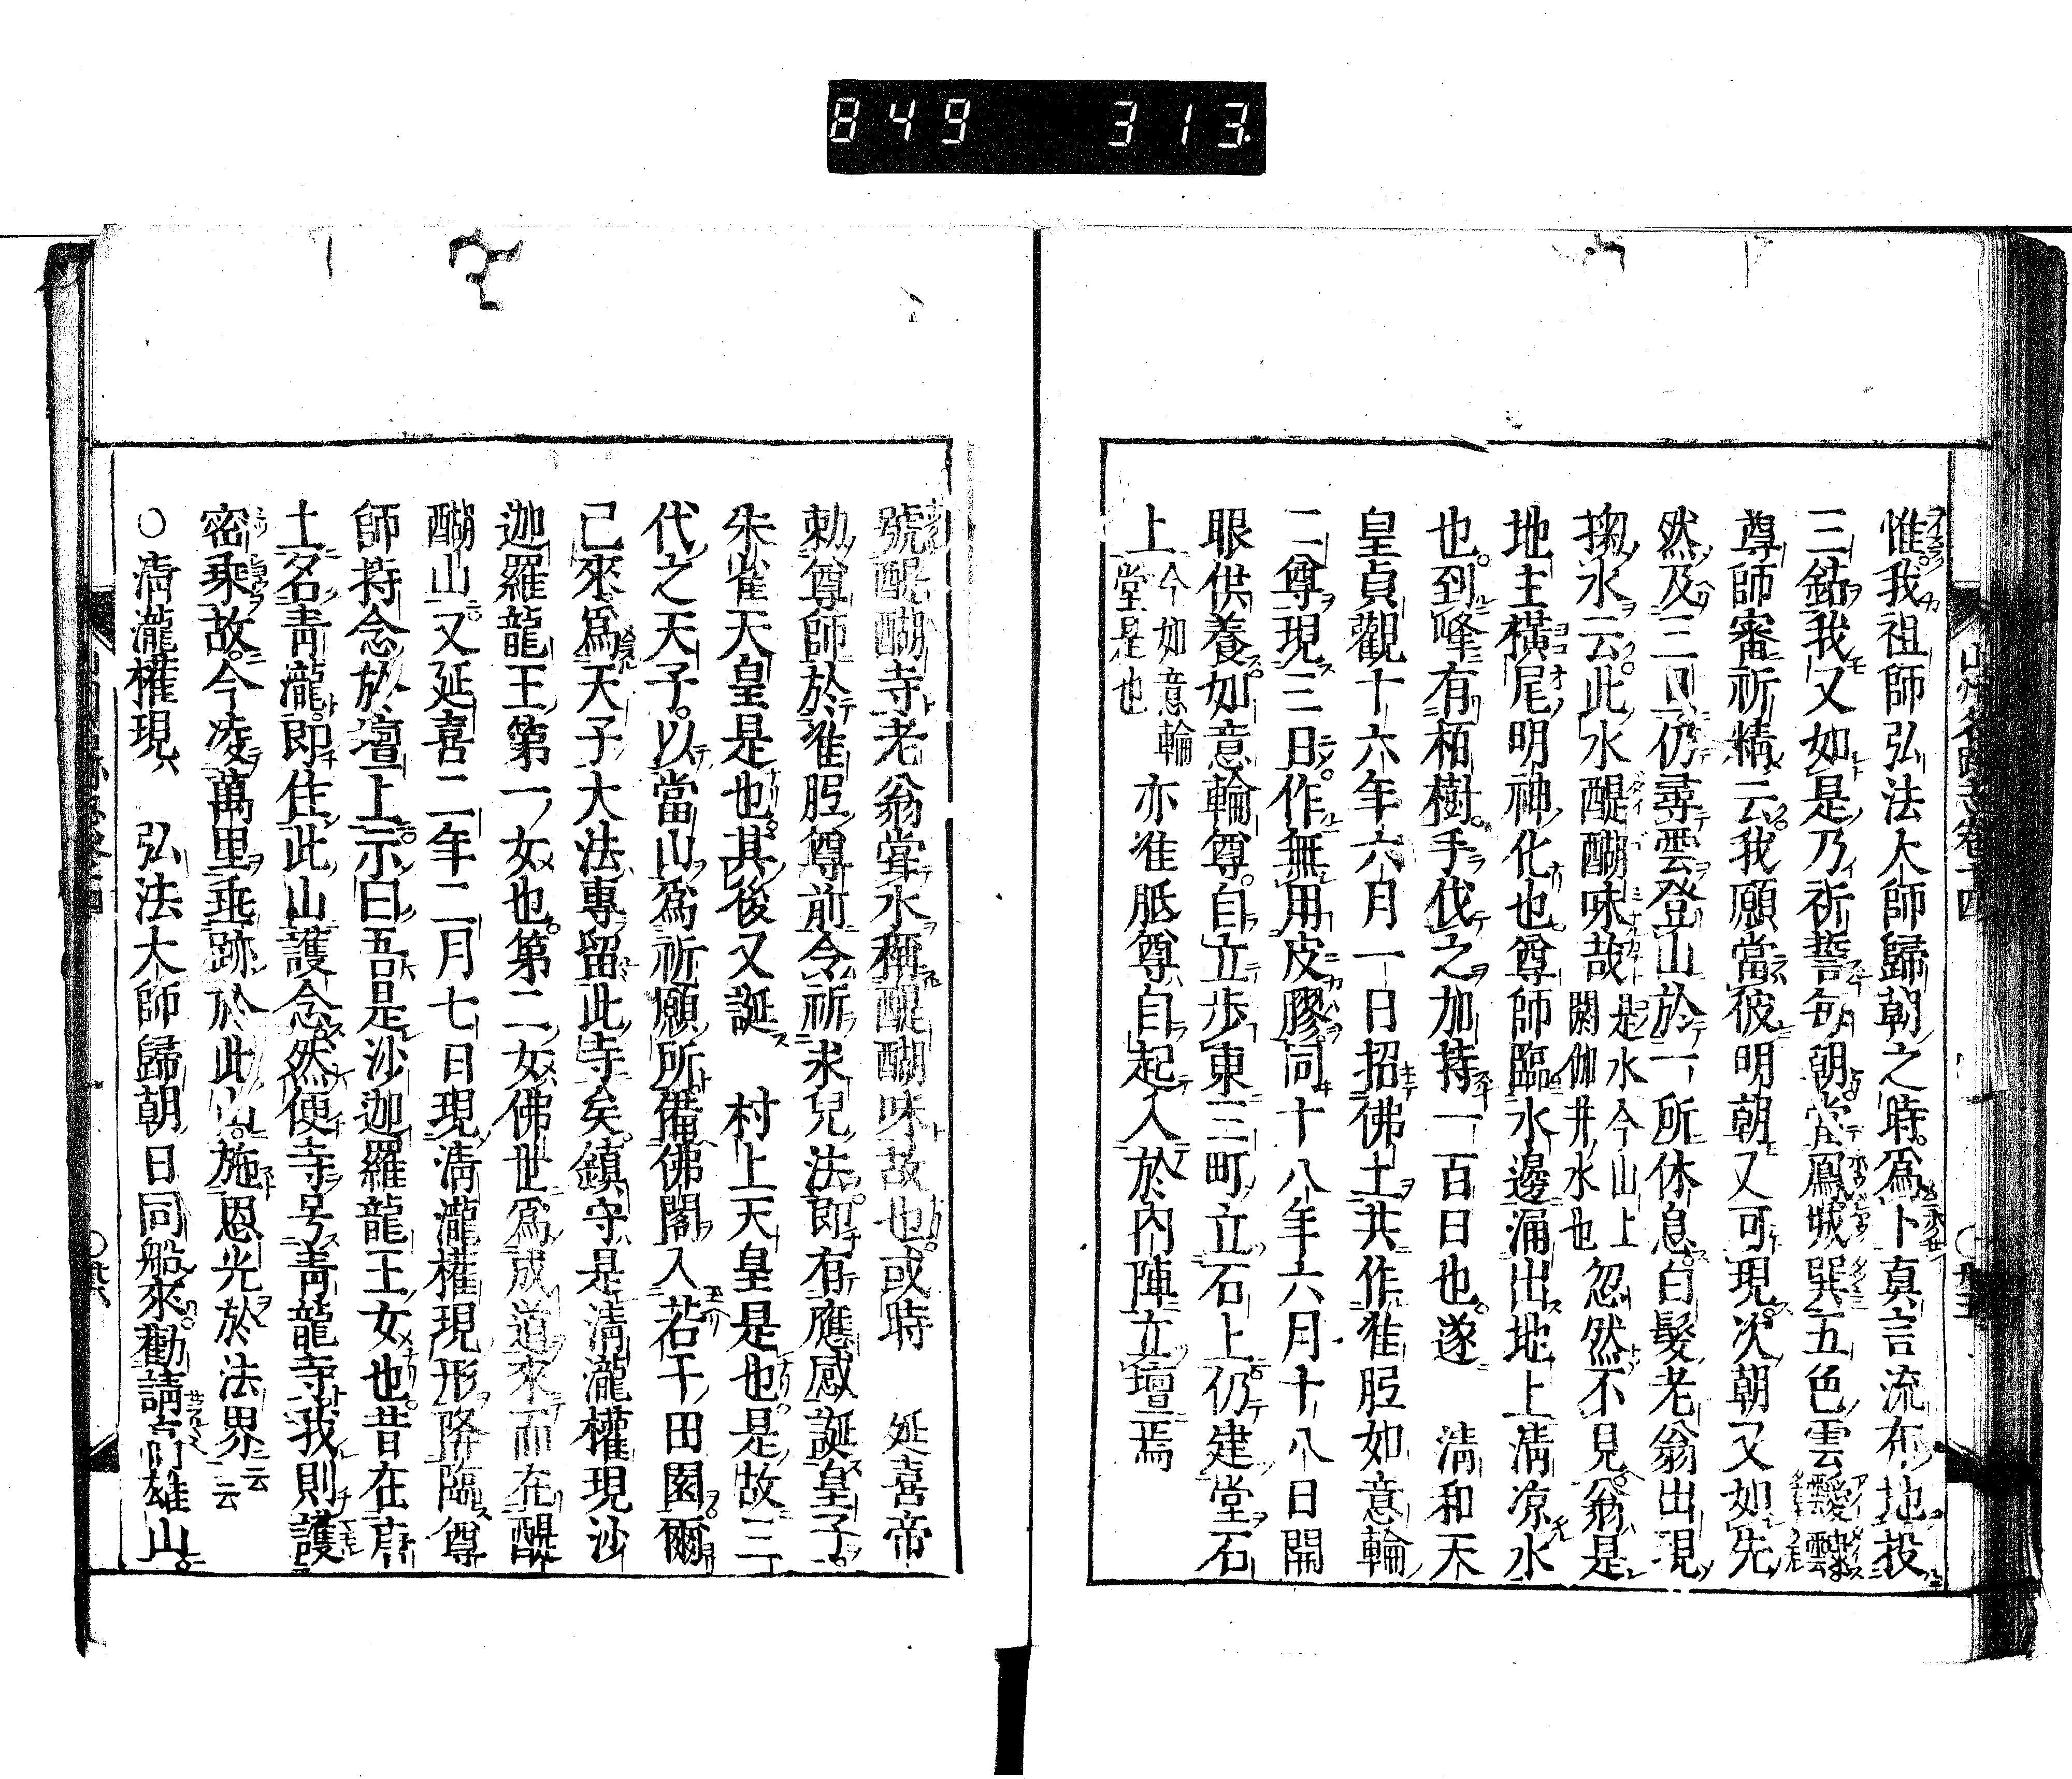 849 313
惟我祖師弘法大師歸朝之時爲卜真言流布地投
三鈷我又如是乃祈誓每朝當鳳城巽五色雲靉靆
尊師審祈精云我願當彼明朝又可現次朝又如先
然及三日仍尋雲登山於一所休息白髮老翁出現
掬水云此水醍醐味哉是水今山上閼伽井水也忽然不見翁是
地主橫尾明神化也尊師臨水邊涌出地上淸凉水
也到峰有栢樹手伐之加持一百日也遂 淸和天
皇貞觀十六年六月一日招佛土共作准胝如意輪
二尊現三日作無用皮膠同十八年六月十八日開
眼供養如意輪尊自立步東三町立石上仍建堂石
上今如意輪堂是也 亦准胝尊自起入於內陣立壇焉
號醍醐寺老翁甞水稱醍醐味故也或時 延喜帝
勅尊師於准胝尊前令祈求兒法即有應感誕皇子
朱雀天皇是也其後又誕 村上天皇是也是故三
代之天子以當山爲祈願所備佛閣入若干田園爾
已來爲天子大法專留此寺矣鎭守是淸瀧權現沙
迦羅龍王第一女也第二女佛世爲成道來而在醍
醐山又延喜二年二月七日現淸瀧權現形降臨尊
師持念於壇上示曰吾是沙迦羅龍王女也昔在唐
土名靑瀧即住此山護念然使寺号靑龍寺我則護
密乘故今凌萬里垂跡於此山施恩光於法界云云
○淸瀧權現 弘法大師歸朝日同船來勸請高雄山